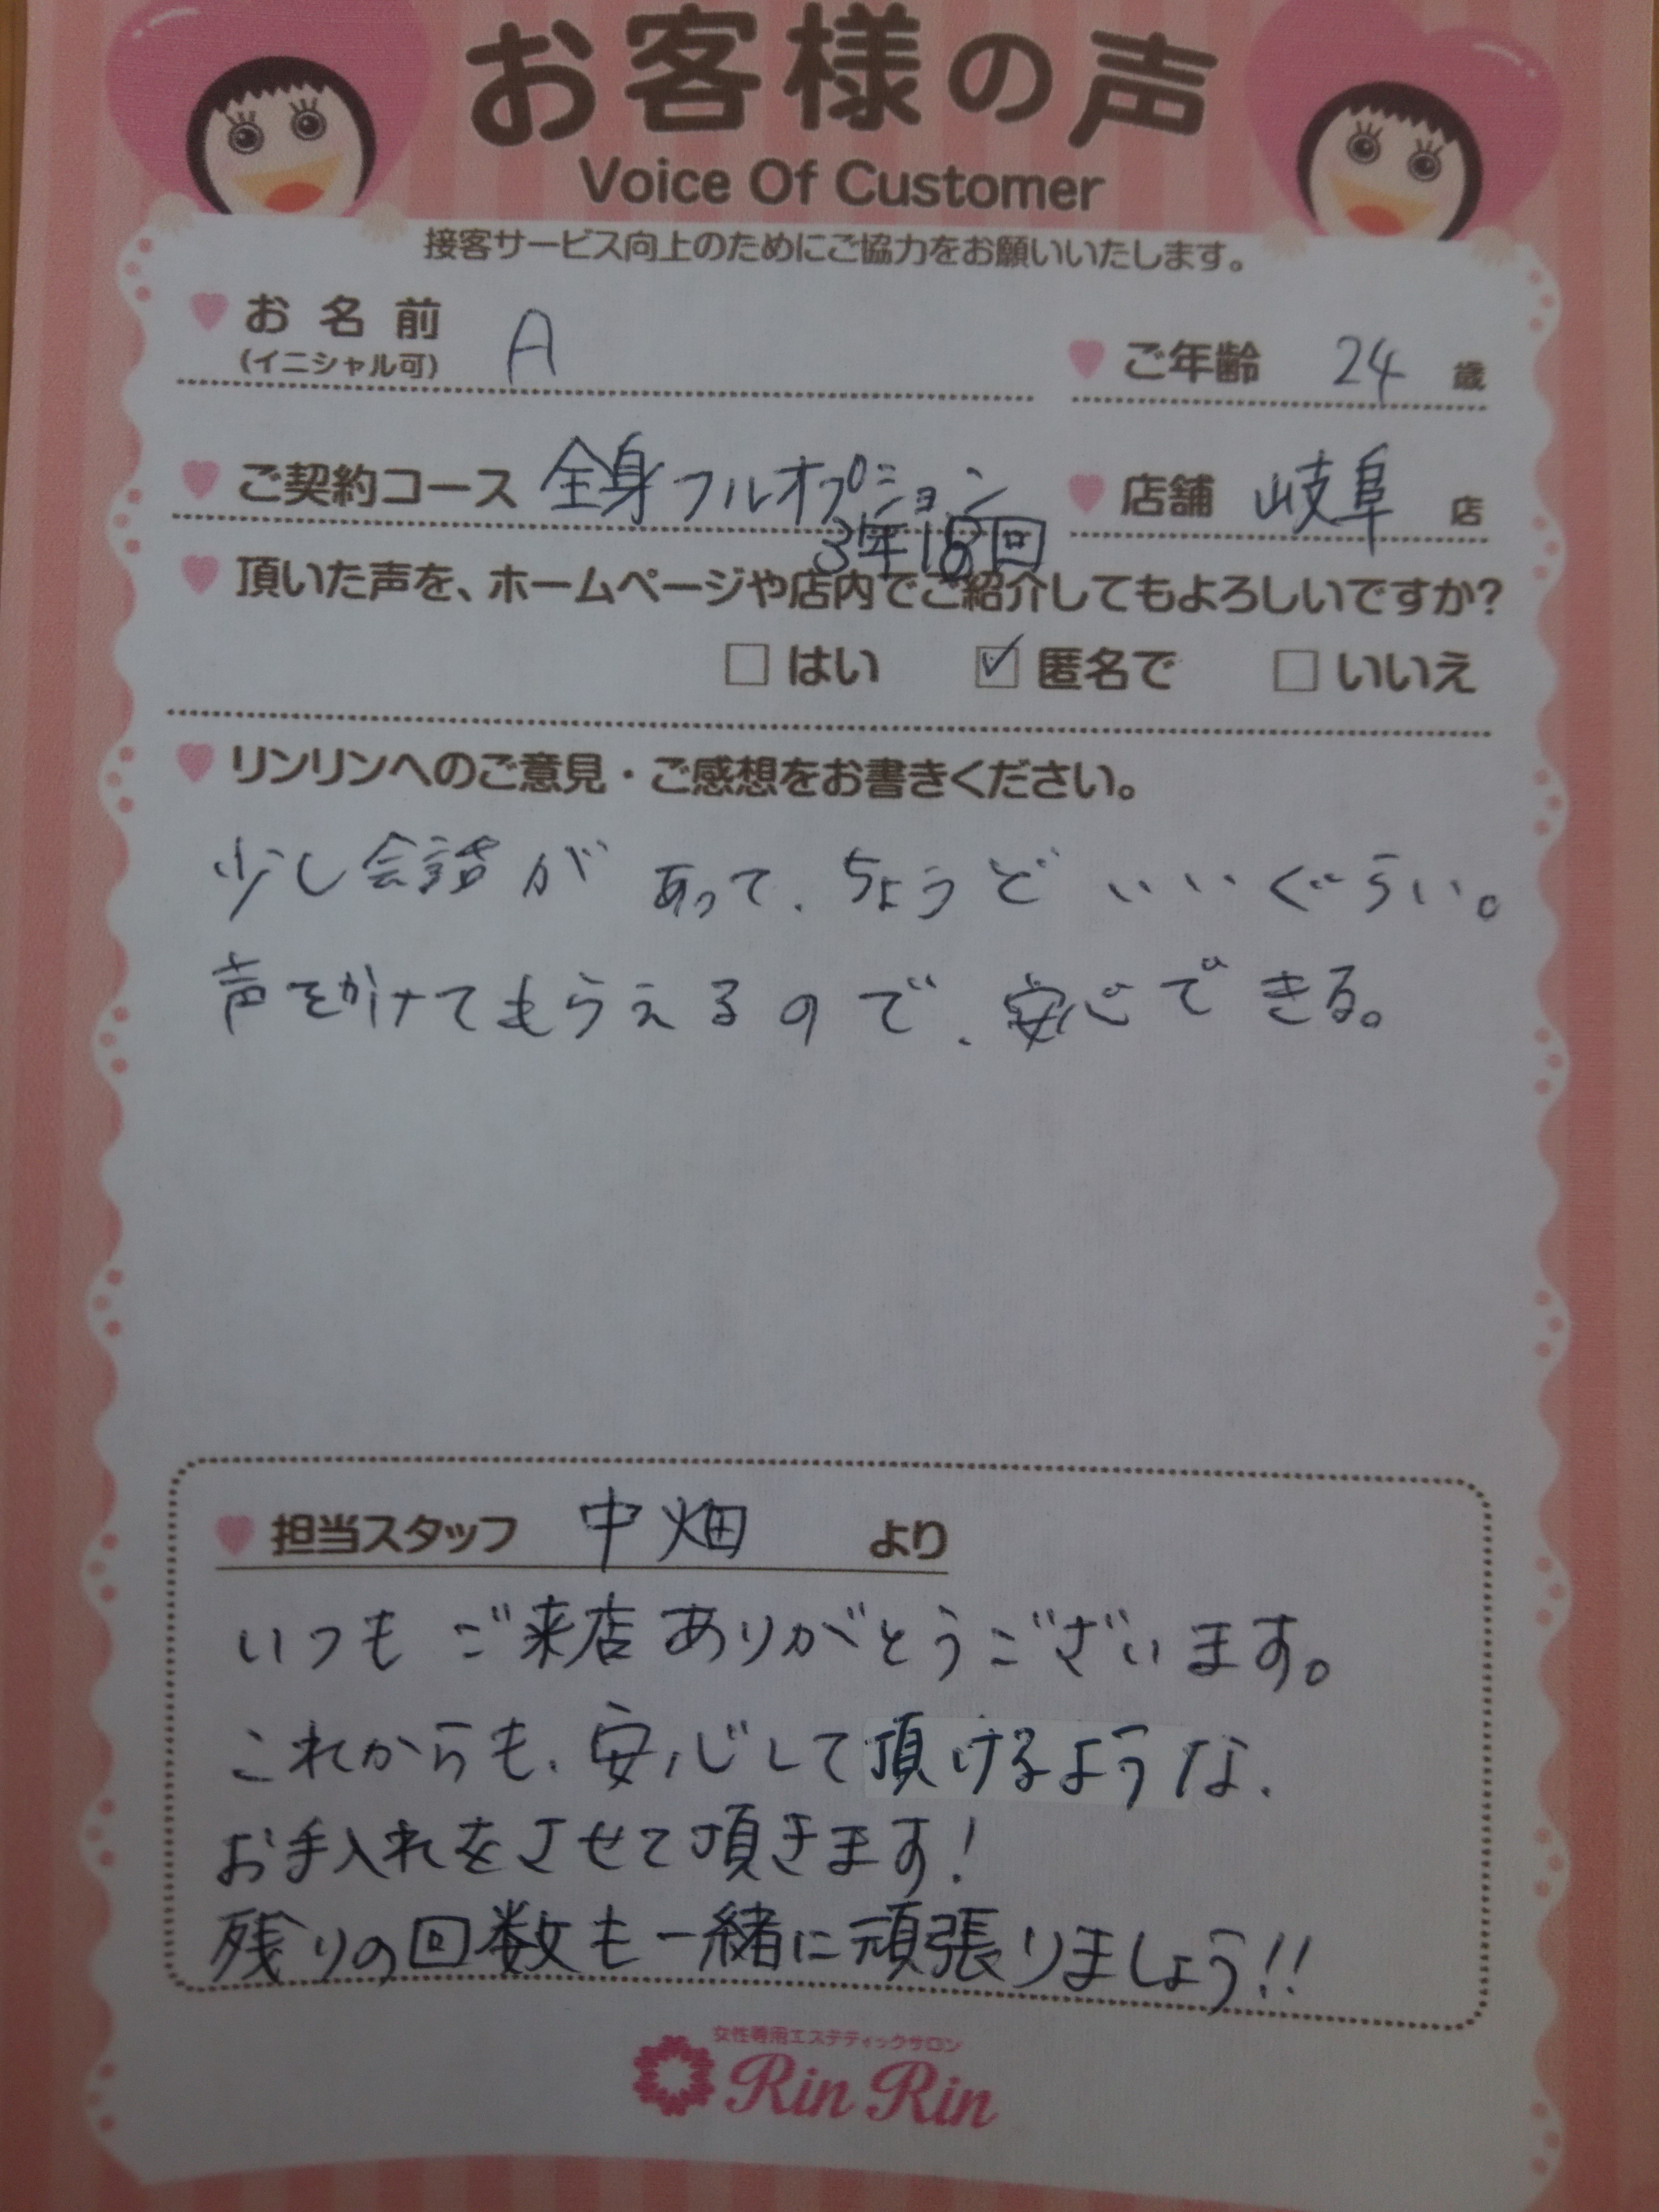 お客様の声
Voice Of Customer
接客サービス向上のためにご協力をお願いいたします。
お名前 A
(イニシャル可)
ご年齢 24 歳
ご契約コース 全身フルオプション
3年18回
店舗 岐阜 店
頂いた声を、ホームページや店内でご紹介してもよろしいですか?
□はい ☑匿名で □いいえ
リンリンへのご意見・ご感想をお書きください。
少し会話が あって、ちょうど いいぐらい。
声をかけてもらえるので、安心できる。
担当スタッフ 中畑 より
いつも ご来店ありがとうございます。
これからも、安心して頂けるような、
お手入れをさせて頂きます!
残りの回数も一緒に頑張りましょう!!
女性専用エステティックサロン
Rin Rin